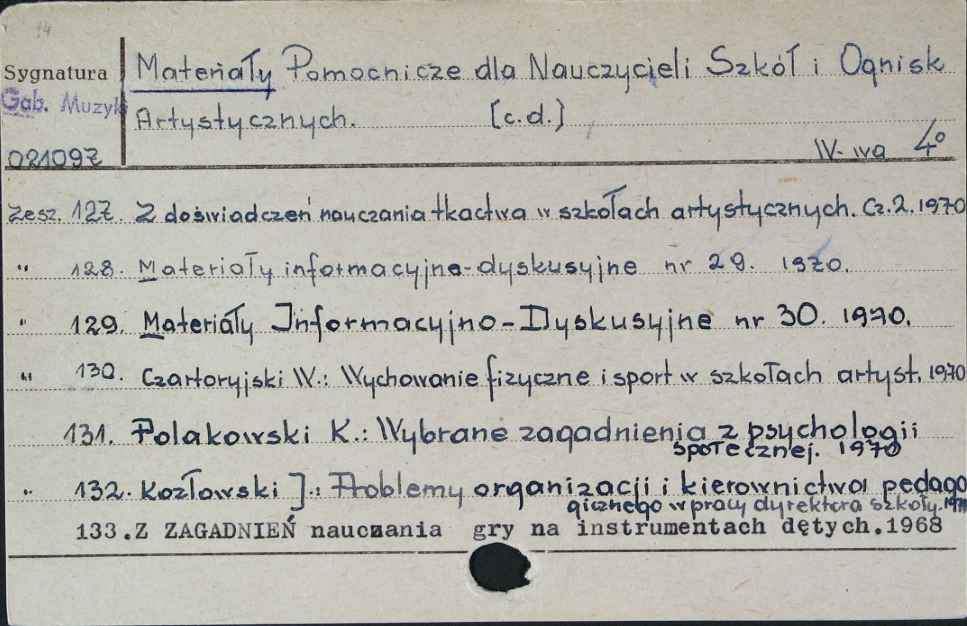 14
Sygnatura Materiały Pomocnicze dla Nauczycieli Szkół i Ognisk
Gab. Muzyk Artystycznych. [c.d.]
021097 W-wa 4°
Zesz. 127. Z doświadczeń nauczania tkactwa w szkołach artystycznych. Cz.2. 1970
" 128. Materiały informacyjno-dyskusyjne nr 29. 1970.
" 129. Materiały Informacyjno-Dyskusyjne nr 30. 1970.
" 130. Czartoryjski W.: Wychowanie fizyczne i sport w szkołach artyst. 1970
131. Polakowski K.: Wybrane zagadnienia z psychologii
społecznej. 1970
" 132. Kozłowski J.: Problemy organizacji i kierownictwa pedago
gicznego w pracy dyrektora szkoły.
133.Z ZAGADNIEŃ nauczania gry na instrumentach dętych.1968